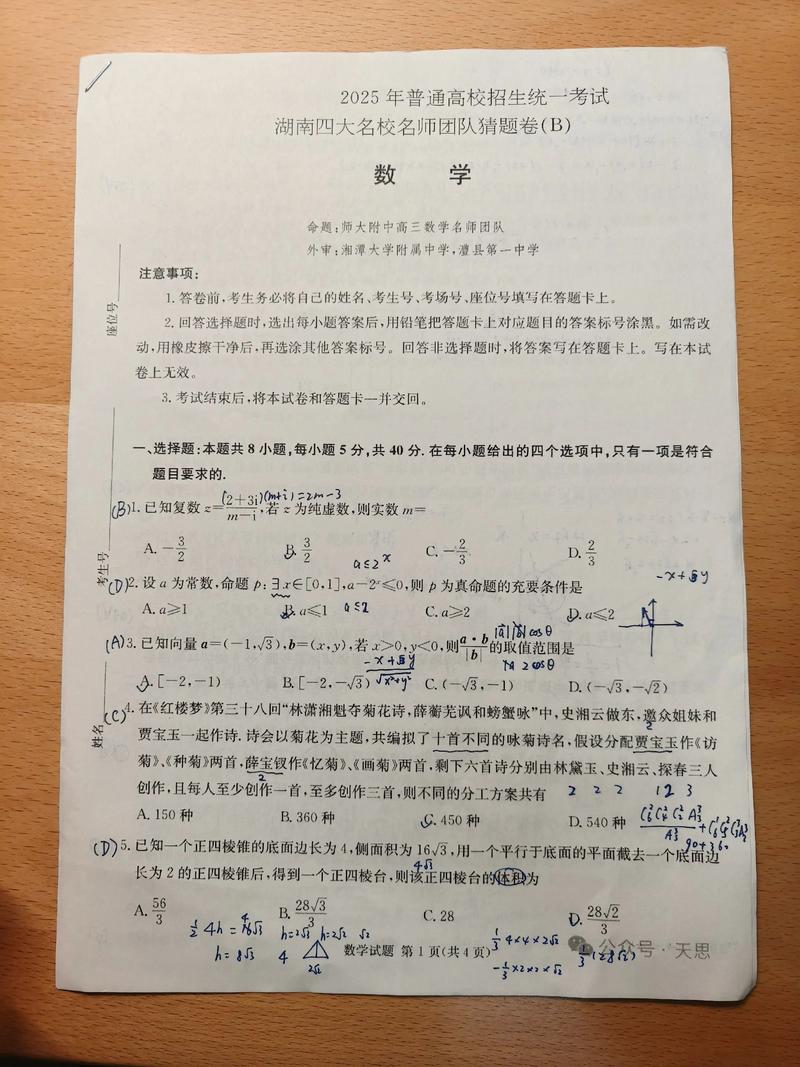 2025年普通高校招生统一考试
湖南四大名校名师团队猜题卷(B)
数 学
命题:师大附中高三数学名师团队
外审:湘潭大学附属中学,澧县第一中学
注意事项:
1.答卷前,考生务必将自己的姓名、考生号、考场号、座位号填写在答题卡上。
2.回答选择题时,选出每小题答案后,用铅笔把答题卡上对应题目的答案标号涂黑。如需改
动,用橡皮擦干净后,再选涂其他答案标号。回答非选择题时,将答案写在答题卡上。写在本试
卷上无效。
3.考试结束后,将本试卷和答题卡一并交回。
座位号
考生号
姓名
一、选择题:本题共8小题,每小题5分,共40分.在每小题给出的四个选项中,只有一项是符合
题目要求的.
(2+3i)(m+i)=2m-3
(B)1.已知复数z=(2+3i)/(m-i),若z为纯虚数,则实数m=
A.-3/2 B.3/2 C.-2/3 D.2/3
a≤2^x
(D)2.设a为常数,命题p:∃x∈[0,1],a-2^x≤0,则p为真命题的充要条件是
-x+√3y
A.a≥1 B.a≤1 a≤2 C.a≥2 D.a≤2
|a||b|cosθ
(A)3.已知向量a=(-1,√3),b=(x,y),若x>0,y<0,则a·b/|b|的取值范围是
-x+√3y/√x²+y² 2cosθ
A.[-2,-1) B.[-2,-√3) C.(-√3,-1) D.(-√3,-√2)
(C)4.在《红楼梦》第三十八回“林潇湘魁夺菊花诗,薛蘅芜讽和螃蟹咏”中,史湘云做东,邀众姐妹和
2
贾宝玉一起作诗.诗会以菊花为主题,共编拟了十首不同的咏菊诗名,假设分配贾宝玉作《访
菊》、《种菊》两首,薛宝钗作《忆菊》、《画菊》两首,剩下六首诗分别由林黛玉、史湘云、探春三人
2
创作,且每人至少创作一首,至多创作三首,则不同的分工方案共有 2 2 2 1 2 3
A.150种 B.360种 C.450种 D.540种
90+360
(D)5.已知一个正四棱锥的底面边长为4,侧面积为16√3,用一个平行于底面的平面截去一个底面边
4√3
长为2的正四棱锥后,得到一个正四棱台,则该正四棱台的体积为
A.56/3 B.28√3/3 C.28 D.28√2/3
h=8√3 h=2√3 h=2√2 √2
4 2√2
1/3 4×4×2√2
-1/3×2×2×√2
数学试题 第1页(共4页)
公众号·天思